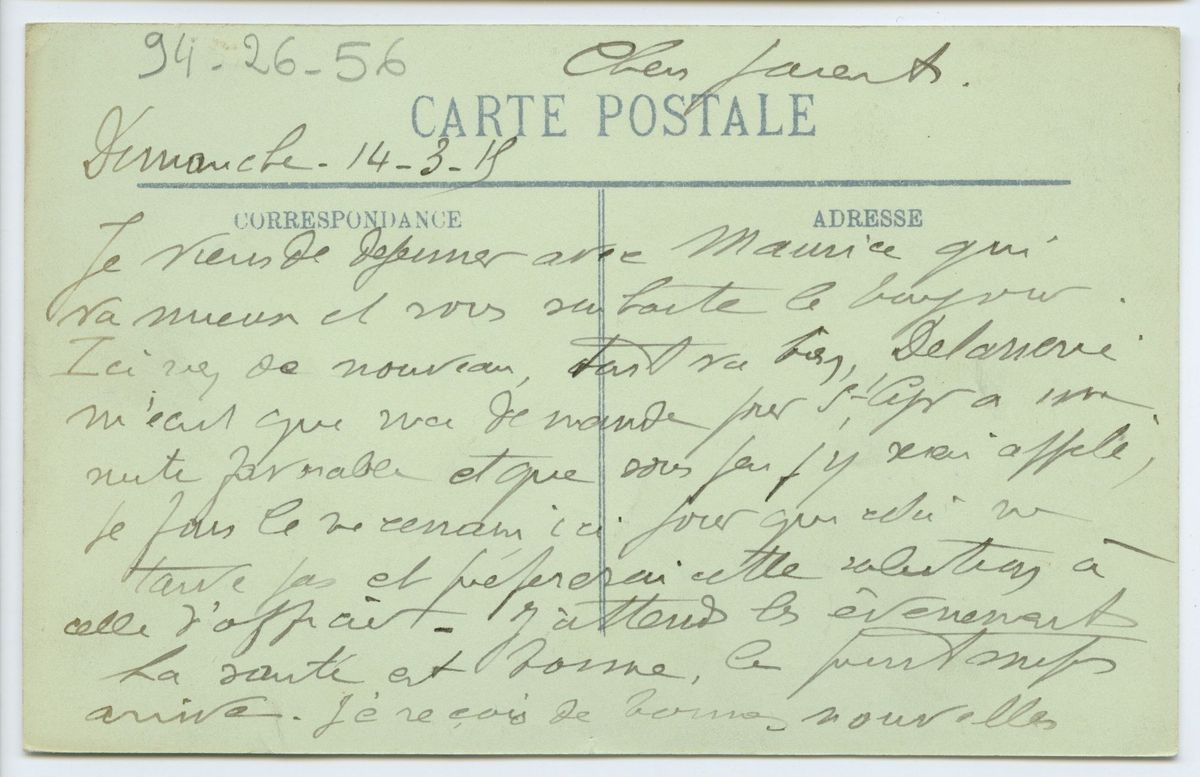 94-26-56
Chers parents.
CARTE POSTALE
Dimanche - 14-3-15
CORRESPONDANCE
ADRESSE
Je viens de dejeuner avec Maurice qui
va mieux et vous souhaite le bonjour.
Ici rien de nouveau, tout va bien,
m'écrit que ma demande pour St Cyr a une
note favorable et que sous peu j'y serai appelé,
je fais le nécessaire ici pour que cela ne
tarde pas et préfererai cette solution à
celle d'. J'attends les évènements
La santé est bonne, le printemps
arrive. Je reçois de bonnes nouvelles